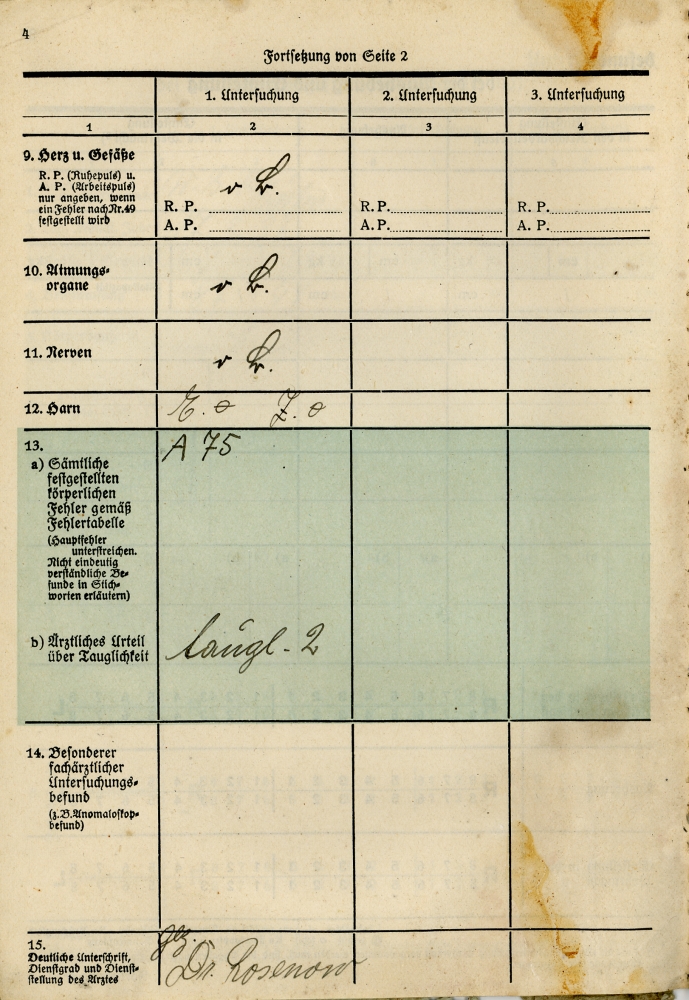 4
Fortsetzung von Seite 2
1. Untersuchung
2. Untersuchung
3. Untersuchung
1
2
3
4
9. Herz u. Gefäße
R. P. (Ruhepuls) u.
A. P. (Arbeitspuls)
nur angeben, wenn
ein Fehler nach Nr. 49
festgestellt wird
o B.
R. P.
A. P.
R. P.
A. P.
R. P.
A. P.
10. Atmungs-
organe
o B.
11. Nerven
o B.
12. Harn
E. ø Z. ø
13.
a) Sämtliche
festgestellten
körperlichen
Fehler gemäß
Fehlertabelle
(Hauptfehler
unterstreichen.
Nicht eindeutig
verständliche Be-
funde in Stich-
worten erläutern)
A 75
b) Ärztliches Urteil
über Tauglichkeit
taugl. 2
14. Besonderer
fachärztlicher
Untersuchungs-
befund
(z. B. Anomaloskop-
befund)
15.
Deutliche Unterschrift,
Dienstgrad und Dienst-
stellung des Arztes
gez.
Dr. Rosenow